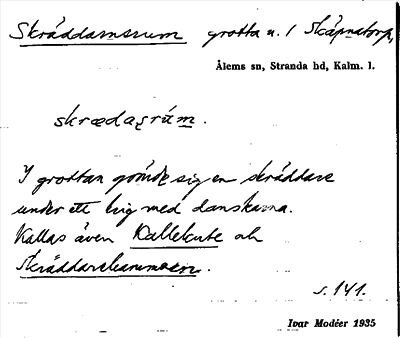 Skräddarsrum grotta u. 1 Skäpnatorp,
Ålems sn, Stranda hd, Kalm. l.
skrædaṣrúm.
I grottan gömde sig en skräddare
under ett krig med danskarna.
Kallas även Kallekute och
Skräddarekammaren.
s. 141.
Ivar Modéer 1935